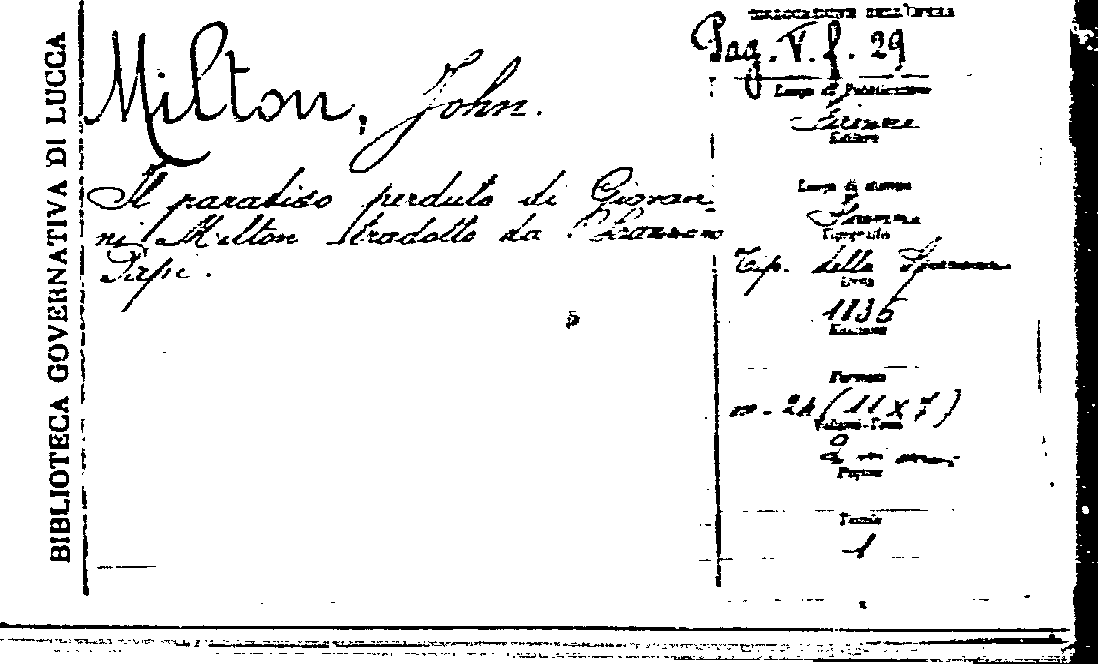 BIBLIOTECA GOVERNATIVA DI LUCCA
Milton, John.
Il paradiso perduto di Giovan-
ni Milton tradotto da Lazzaro
Papi.
COLLOCAZIONE DELL'OPERA
Pag. V. f. 29
Luogo di Pubblicazione
Firenze
Editore
Luogo di stampa
Tipografia
Tip. della
1836
Edizione
Formato
in-24 (11 x 7)
Volumi-Tomi
2 in
Pagine
Tavole
1